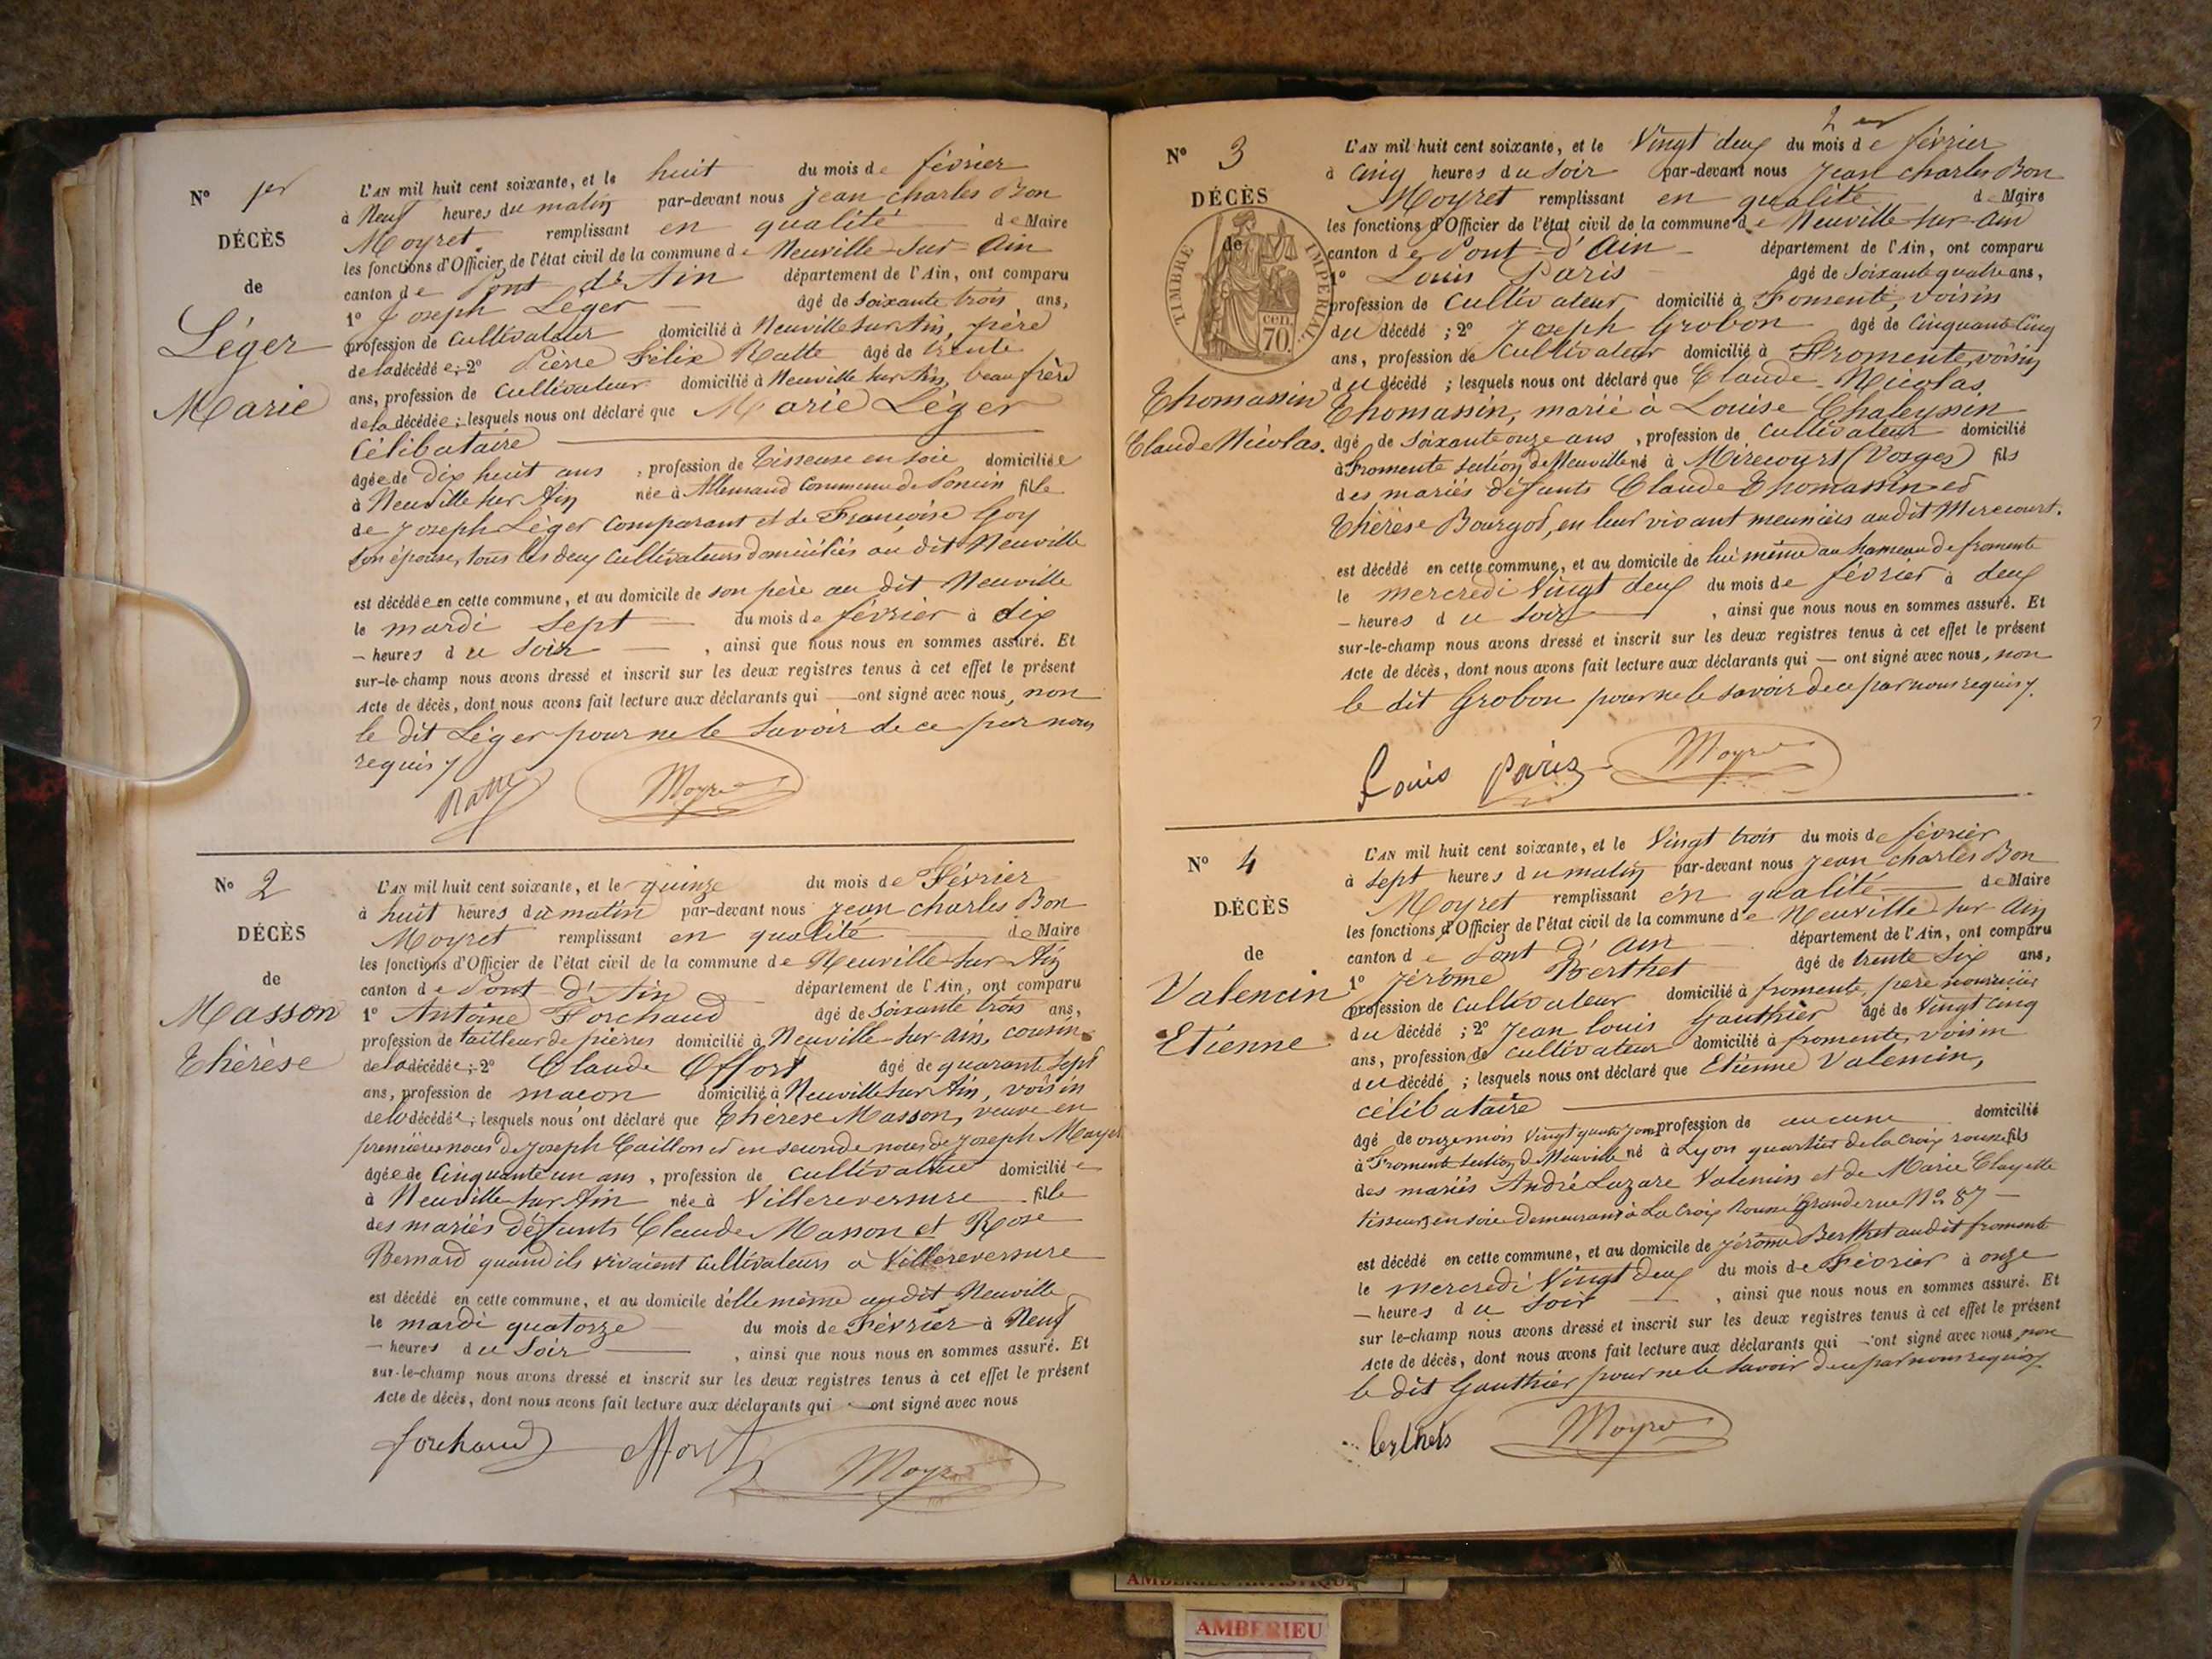 Nº 1er
DÉCÈS
de
Léger
Marie
L'AN mil huit cent soixante, et le huit du mois de février
à Neuf heures du matin par-devant nous Jean Charles Bon
Moyret remplissant en qualité de Maire
les fonctions d'Officier de l'état civil de la commune de Neuville sur Ain
canton de Pont d'Ain département de l'Ain, ont comparu
1º Joseph Léger âgé de soixante trois ans,
profession de cultivateur domicilié à Neuville sur Ain, père
de la décédée; 2º Pierre Félix Ratte âgé de trente
ans, profession de cultivateur domicilié à Neuville sur Ain, beau frère
de la décédée; lesquels nous ont déclaré que Marie Léger
célibataire
âgée de dix huit ans, profession de Tisseuse en soie domiciliée
à Neuville sur Ain née à Allemand Commune de Poncin fille
de Joseph Léger comparant et de Françoise Goy
son épouse, tous les deux cultivateurs domiciliés au dit Neuville
est décédée en cette commune, et au domicile de son père au dit Neuville
le mardi sept du mois de février à dix
heures du soir, ainsi que nous nous en sommes assuré. Et
sur-le-champ nous avons dressé et inscrit sur les deux registres tenus à cet effet le présent
Acte de décès, dont nous avons fait lecture aux déclarants qui ont signé avec nous, non
le dit Léger pour ne le savoir de ce par nous
requis
Ratte Moyret
Nº 2
DÉCÈS
de
Masson
Thérèse
L'AN mil huit cent soixante, et le quinze du mois de Février
à huit heures du matin par-devant nous Jean Charles Bon
Moyret remplissant en qualité de Maire
les fonctions d'Officier de l'état civil de la commune de Neuville sur Ain
canton de Pont d'Ain département de l'Ain, ont comparu
1º Antoine Forchaud âgé de soixante trois ans,
profession de tailleur de pierres domicilié à Neuville sur Ain, cousin
de la décédée; 2º Claude Offort âgé de quarante sept
ans, profession de maçon domicilié à Neuville sur Ain, voisin
de la décédée; lesquels nous ont déclaré que Thérèse Masson, veuve en
premières noces de Joseph Caillon et en seconde noces de Joseph Moyet
âgée de Cinquante un ans, profession de cultivatrice domiciliée
à Neuville sur Ain née à Villereversure fille
des mariés défunts Claude Masson et Rose
Bernard quand ils vivaient cultivateurs à Villereversure
est décédé en cette commune, et au domicile d'elle même au dit Neuville
le mardi quatorze du mois de Février à Neuf
heures du Soir, ainsi que nous nous en sommes assuré. Et
sur-le-champ nous avons dressé et inscrit sur les deux registres tenus à cet effet le présent
Acte de décès, dont nous avons fait lecture aux déclarants qui ont signé avec nous
forchaud offort Moyret
Nº 3
DÉCÈS
de
TIMBRE IMPERIAL
70 cen.
Thomassin
Claude Nicolas.
L'AN mil huit cent soixante, et le Vingt deux du mois de février
à cinq heures du soir par-devant nous Jean Charles Bon
Moyret remplissant en qualité de Maire
les fonctions d'Officier de l'état civil de la commune de Neuville sur Ain
canton de Pont d'Ain département de l'Ain, ont comparu
1º Louis Paris âgé de soixante quatre ans,
profession de cultivateur domicilié à Fromente, voisin
du décédé; 2º Joseph Grobon âgé de cinquante cinq
ans, profession de cultivateur domicilié à Fromente, voisin
du décédé; lesquels nous ont déclaré que Claude Nicolas
Thomassin, marié à Louise Chaleyssin
âgé de soixante onze ans, profession de cultivateur domicilié
à Fromente section de Neuville né à Mirecourt (Vosges) fils
des mariés défunts Claude Thomassin et
Thérèse Bourgot, en leur vivant meuniers au dit Mirecourt.
est décédé en cette commune, et au domicile de lui même au hameau de fromente
le mercredi vingt deux du mois de février à deux
heures du soir, ainsi que nous nous en sommes assuré. Et
sur-le-champ nous avons dressé et inscrit sur les deux registres tenus à cet effet le présent
Acte de décès, dont nous avons fait lecture aux déclarants qui ont signé avec nous, non
le dit Grobon pour ne le savoir de ce par nous requis
Louis Paris Moyret
Nº 4
DÉCÈS
de
Valencin
Etienne
L'AN mil huit cent soixante, et le Vingt trois du mois de février
à sept heures du matin par-devant nous Jean Charles Bon
Moyret remplissant en qualité de Maire
les fonctions d'Officier de l'état civil de la commune de Neuville sur Ain
canton de Pont d'Ain département de l'Ain, ont comparu
1º Jérôme Berthet âgé de trente six ans,
profession de cultivateur domicilié à fromente, père nourricier
du décédé; 2º Jean Louis Gauthier âgé de vingt cinq
ans, profession de cultivateur domicilié à fromente, voisin
du décédé; lesquels nous ont déclaré que Etienne Valencin,
célibataire
âgé de onze mois vingt quatre jours profession de aucune domicilié
à Fromente section de Neuville né à Lyon quartier de la croix rousse fils
des mariés André Lazare Valencin et de Marie Clayette
tisseurs en soie demeurants à La Croix Rousse Grande rue Nº 87
est décédé en cette commune, et au domicile de Jérôme Berthet audit fromente
le mercredi vingt deux du mois de Février à onze
heures du soir, ainsi que nous nous en sommes assuré. Et
sur le-champ nous avons dressé et inscrit sur les deux registres tenus à cet effet le présent
Acte de décès, dont nous avons fait lecture aux déclarants qui ont signé avec nous, non
le dit Gauthier pour ne le savoir de ce par nous requis
berthets Moyret
AMBERIEU ARTISTIQUE
AMBERIEU